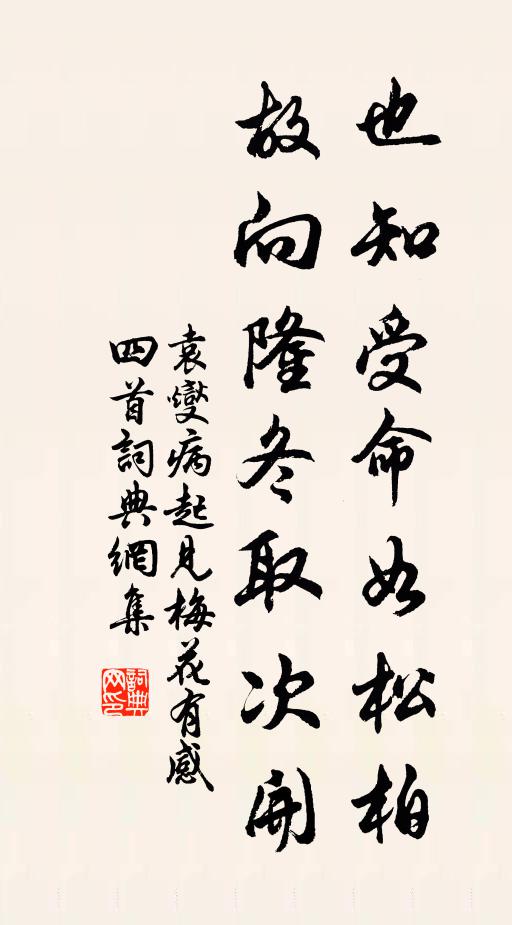 也知受命如松柏
故向隆冬取次開
袁燮病起見梅花有感
四首詞典網集
詞典
网印